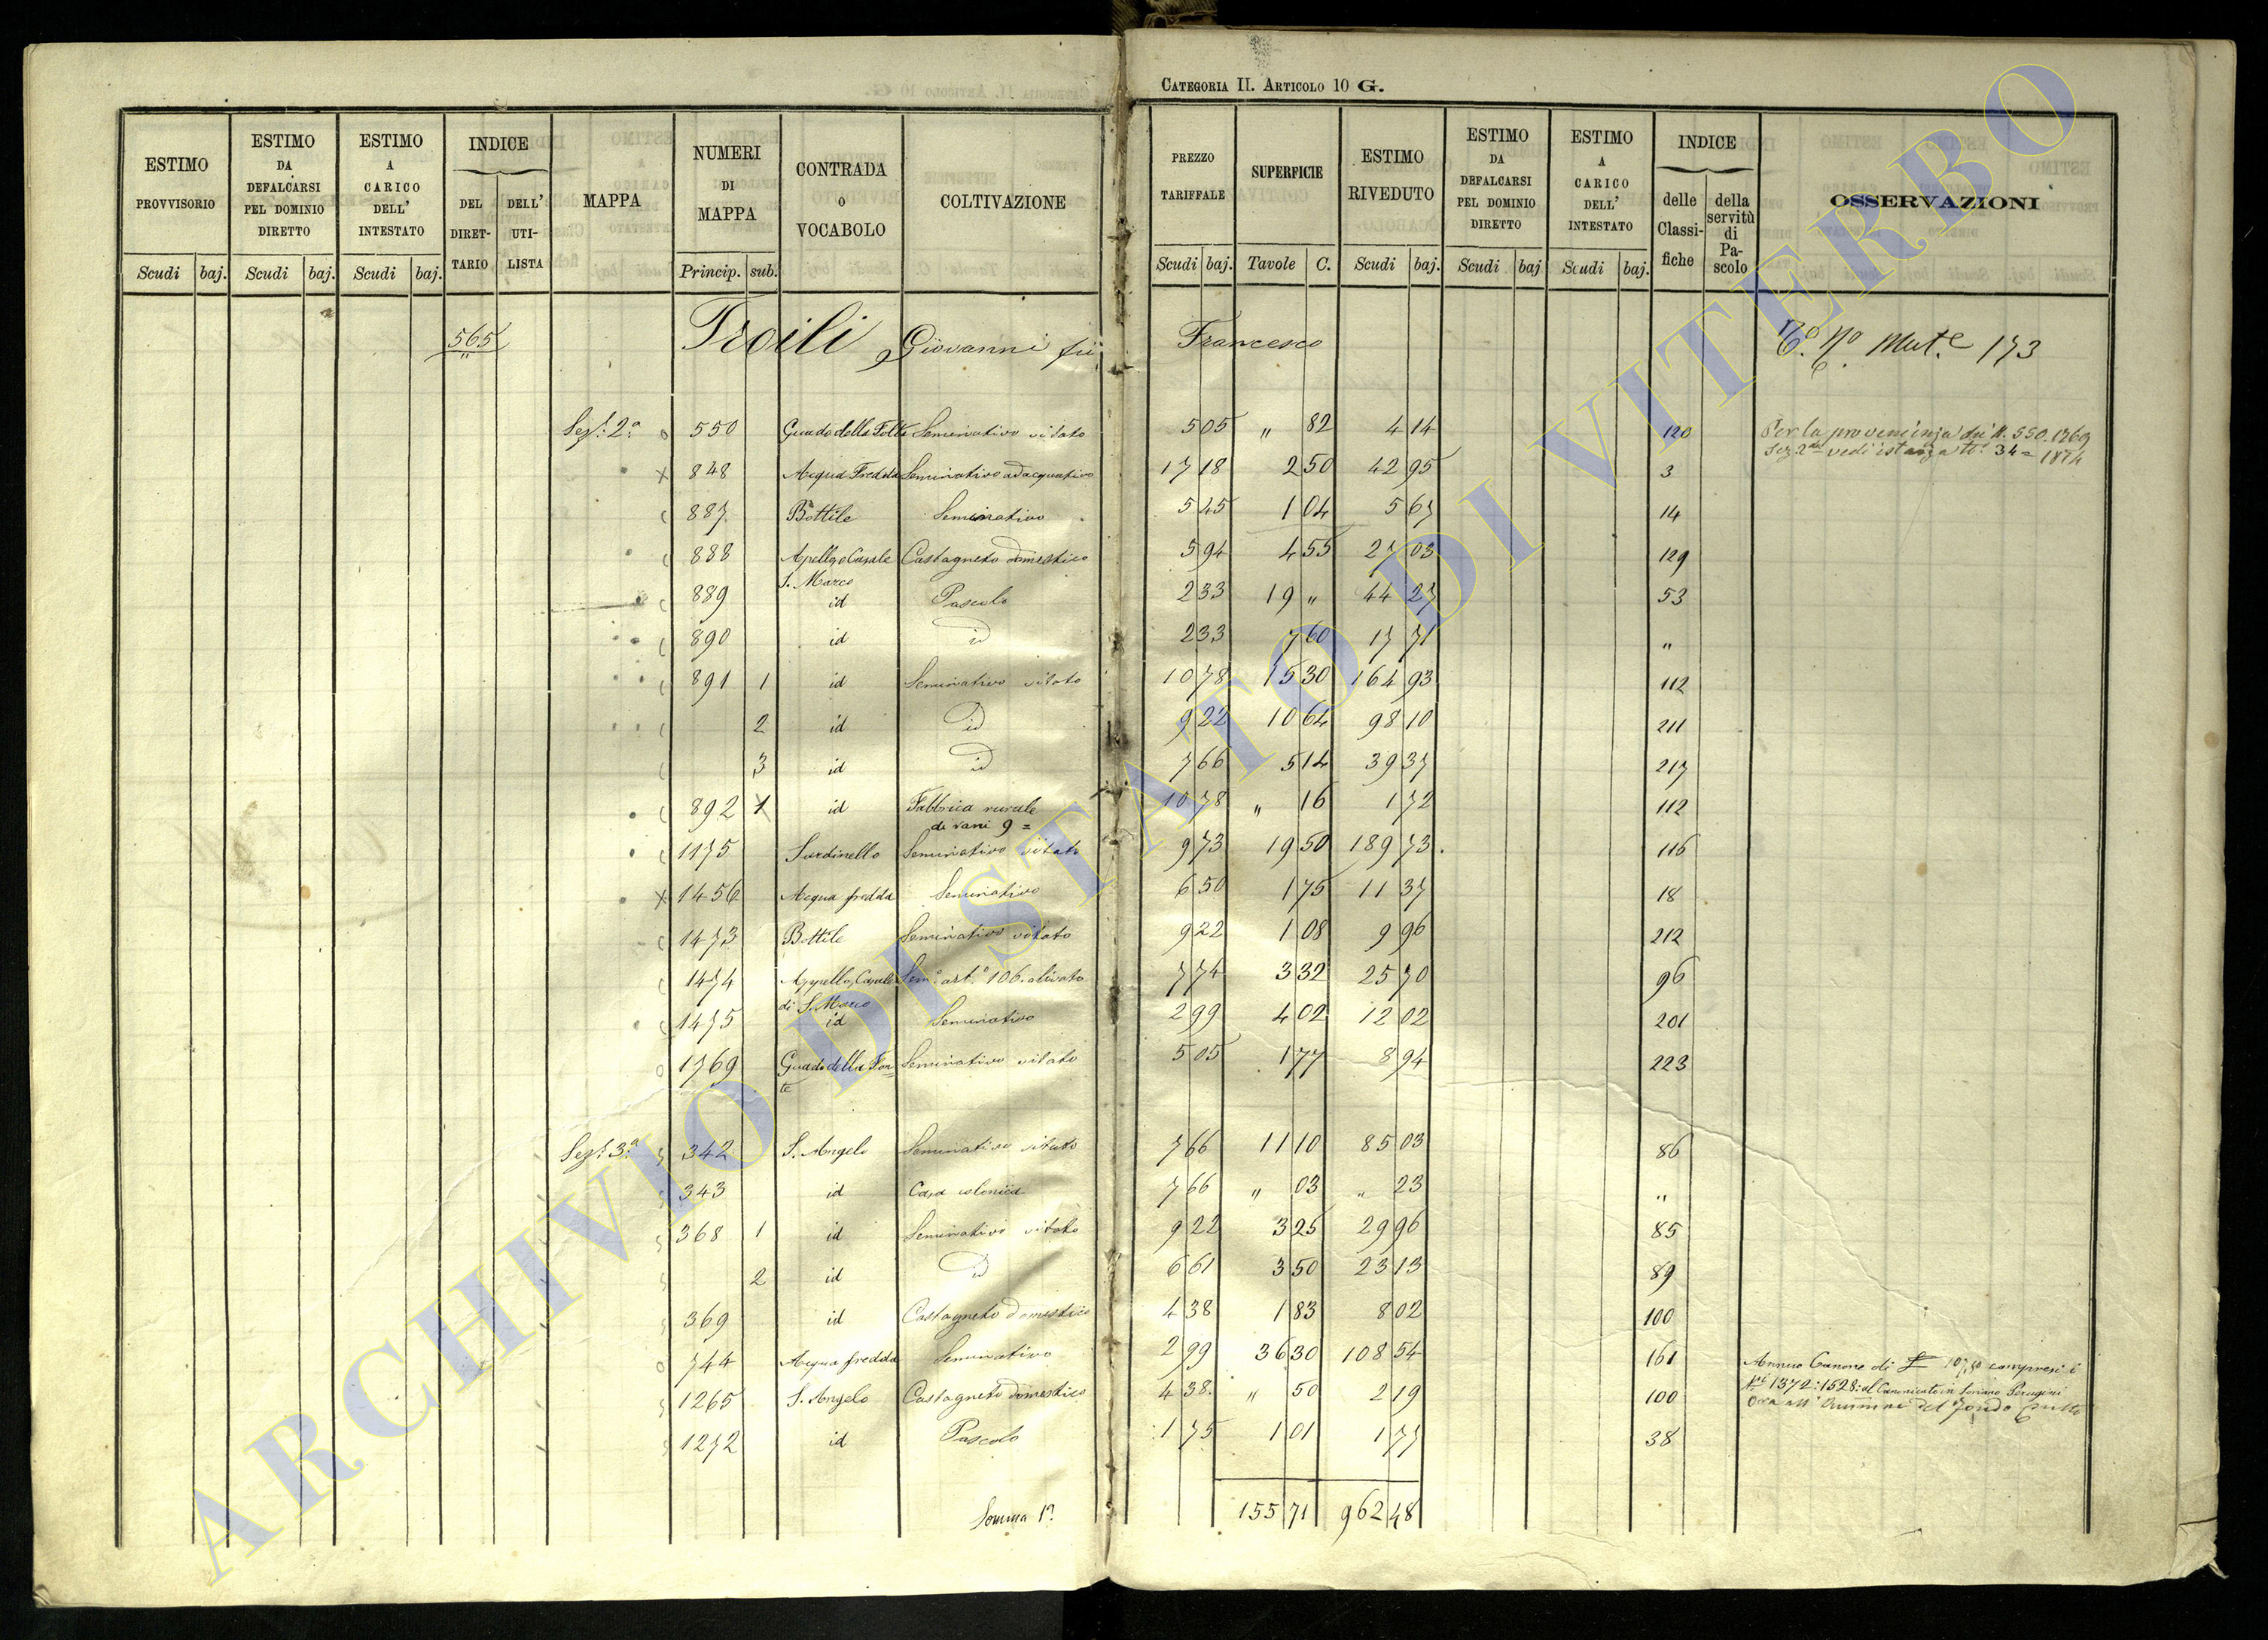 CATEGORIA II. ARTICOLO 10 G.
ESTIMO PROVVISORIO Scudi baj.
ESTIMO DA DEFALCARSI PEL DOMINIO DIRETTO Scudi baj.
ESTIMO A CARICO DELL' INTESTATO Scudi baj.
INDICE DEL DIRETTARIO DELL' UTILISTA
MAPPA
NUMERI DI MAPPA Princip. sub.
CONTRADA O VOCABOLO
COLTIVAZIONE
PREZZO TARIFFALE Scudi baj.
SUPERFICIE Tavole C.
ESTIMO RIVEDUTO Scudi baj.
ESTIMO DA DEFALCARSI PEL DOMINIO DIRETTO Scudi baj
ESTIMO A CARICO DELL' INTESTATO Scudi baj.
INDICE delle Classifiche della servitù di Pascolo
OSSERVAZIONI
565 Troili Giovanni fu Francesco Mut.e 173
Sez. 2a 550 Seminativo vitato 5 05 " 82 4 14 120 Per la provenienza
848 Acqua Fredda Seminativo adacquativo 17 18 2 50 42 95 3 Sez 2a vedi istanza 34 = 1874
887 Bottile Seminativo 5 45 1 04 5 67 14
888 Casale Castagneto domestico 5 94 4 55 27 03 129
S. Marco
889 id Pascolo 2 33 19 " 44 27 53
890 id id 2 33 7 60 17 71 "
891 1 id Seminativo vitato 10 78 15 30 164 93 112
2 id id 9 22 10 64 98 10 211
3 id id 7 66 5 14 39 37 217
892 1 id Fabbrica rurale 10 78 " 16 1 72 112
di vani 9 =
1175 Sardinello Seminativo vitato 9 73 19 50 189 73 116
1456 Acqua fredda Seminativo 6 50 1 75 11 37 18
1473 Bottile Seminativo vitato 9 22 1 08 9 96 212
1474 Casale 106 olivato 7 74 3 32 25 70 96
di S. Marco
1475 id Seminativo 2 99 4 02 12 02 201
1769 Guado della Fon Seminativo vitato 5 05 1 77 8 94 223
te
Sez. 3a 342 S. Angelo Seminativo vitato 7 66 11 10 85 03 86
343 id Casa colonica 7 66 " 03 " 23 "
368 1 id Seminativo vitato 9 22 3 25 29 96 85
2 id id 6 61 3 50 23 13 89
369 id Castagneto domestico 4 38 1 83 8 02 100
744 Acqua fredda Seminativo 2 99 36 30 108 54 161 Annuo Canone di compresi i
1265 S. Angelo Castagneto domestico 4 38 " 50 2 19 100 Ni 1372: 1528: al Canonicato in Soriano Perugini
1272 id Pascolo 1 75 1 01 1 77 38 Ora del Fondo Culto
Somma 1a 155 71 962 48
ARCHIVIO DI STATO DI VITERBO